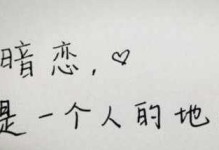 暗恋,♡
是一个人的地